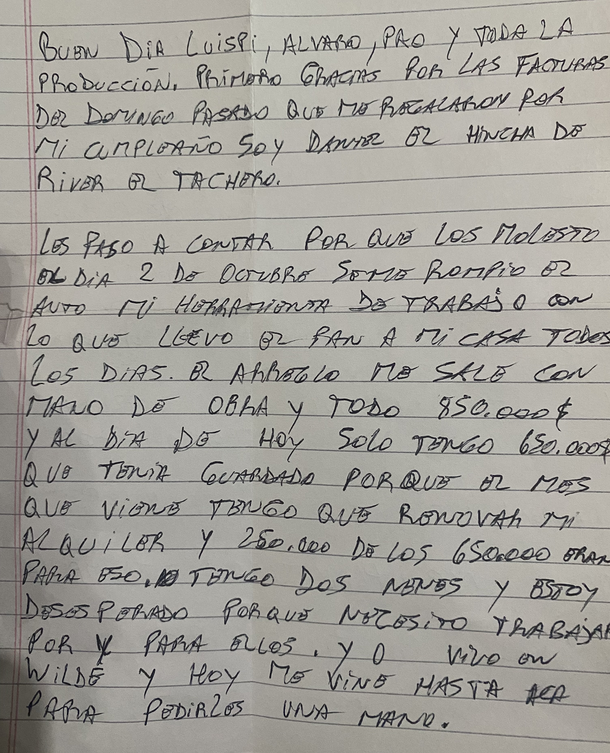 BUEN DIA LUISPI, ALVARO, PAO Y TODA LA
PRODUCCIÓN. PRIMERO GRACIAS POR LAS FACTURAS
DEL DOMINGO PASADO QUE ME REGALARON POR
MI CUMPLEAÑO SOY DANIEL EL HINCHA DE
RIVER EL TACHERO.
LES PASO A CONTAR POR QUE LOS MOLESTO
EL DIA 2 DE OCTUBRE SEME ROMPIO EL
AUTO MI HERRAMIENTA DE TRABAJO CON
LO QUE LLEVO EL PAN A MI CASA TODOS
LOS DIAS. EL ARREGLO ME SALE CON
MANO DE OBRA Y TODO 850.000$
Y AL DIA DE HOY SOLO TENGO 650.000$
QUE TENIA GUARDADO PORQUE EL MES
QUE VIENE TENGO QUE RENOVAR MI
ALQUILER Y 250.000 DE LOS 650.000 ERAN
PARA ESO. TENGO DOS NENES Y ESTOY
DESESPERADO PORQUE NECESITO TRABAJAR
POR Y PARA ELLOS. YO VIVO EN
WILDE Y HOY ME VINE HASTA ACA
PARA PEDIRLES UNA MANO.